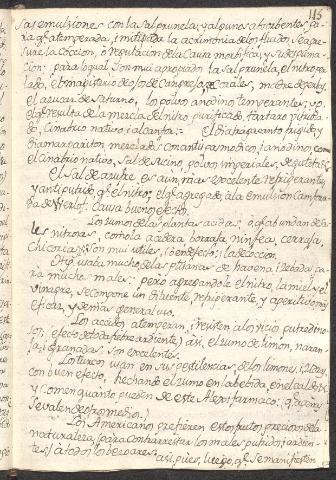 115
sas emulsiones con la sal prunela, y algunos absorbentes, pa-
ra qe. atemperada, i mitigada la acrimonia de los fluidos, se apre-
sure la Coccion, o regulacion de la Causa morbifica, y su depura-
cion: para lo qual son mui apropiados la sal prunela, el nitro pu-
rificado, el magisterio de ojos de Cangrejos, de Corales, madre de perlas,
el azucar de saturno, los polvos anodinos temperantes; ye
qe. resulta de la mezcla del nitro purificado, tartaro vitriola-
do, Cinabrio nativo i alcanfor: el diatragacanto frigido, y
diamargariton, mezclados con antispasmodico, i anodino, con
el Cinabrio nativo, sal de succino, polvos imperiales, de guteta &.
El sal de azufre es aun mas excelente refrigerante,
y antiputrido qe. el nitro; el qe. agregado a la emulsion Camfora-
da de Werlof. Causa buen efecto.
Los zumos de las plantas acidas, o qe. abundan de sa-
les nitrosas, como la acedera, borraja, ninfea, cerraja,
Chicorias, son mui utiles, i en defecto, la decoccion.
usaba mucho de las ptisanas de havena, i cebada pa-
ra muchos males: pero agregandole el nitro, la miel, o el
vinagre, se compone un diluente, refrigerante, y aperitivo mas
eficaz, y demas general uso.
Los acidos atemperan, i resisten a lo vicio putredino-
so, i efecto de toda fiebre ardiente; asi, el zumo de limon, naran-
ja, i granadas, son excelentes.
Los turcos usan en sus pestilencias, de los limones,
con buen efecto, hechando el zumo en la bebida, en el caldo &.
y comen quanto pueden de este Alexofarmaco;
se valen de otro medio.
Los Americanos prefieren estos frutos precioso de la
naturaleza, para contrarrestar los males putridos, i ardien-
tes, a todos los bezoares.
asi, pues, luego, qe. se manifiesten